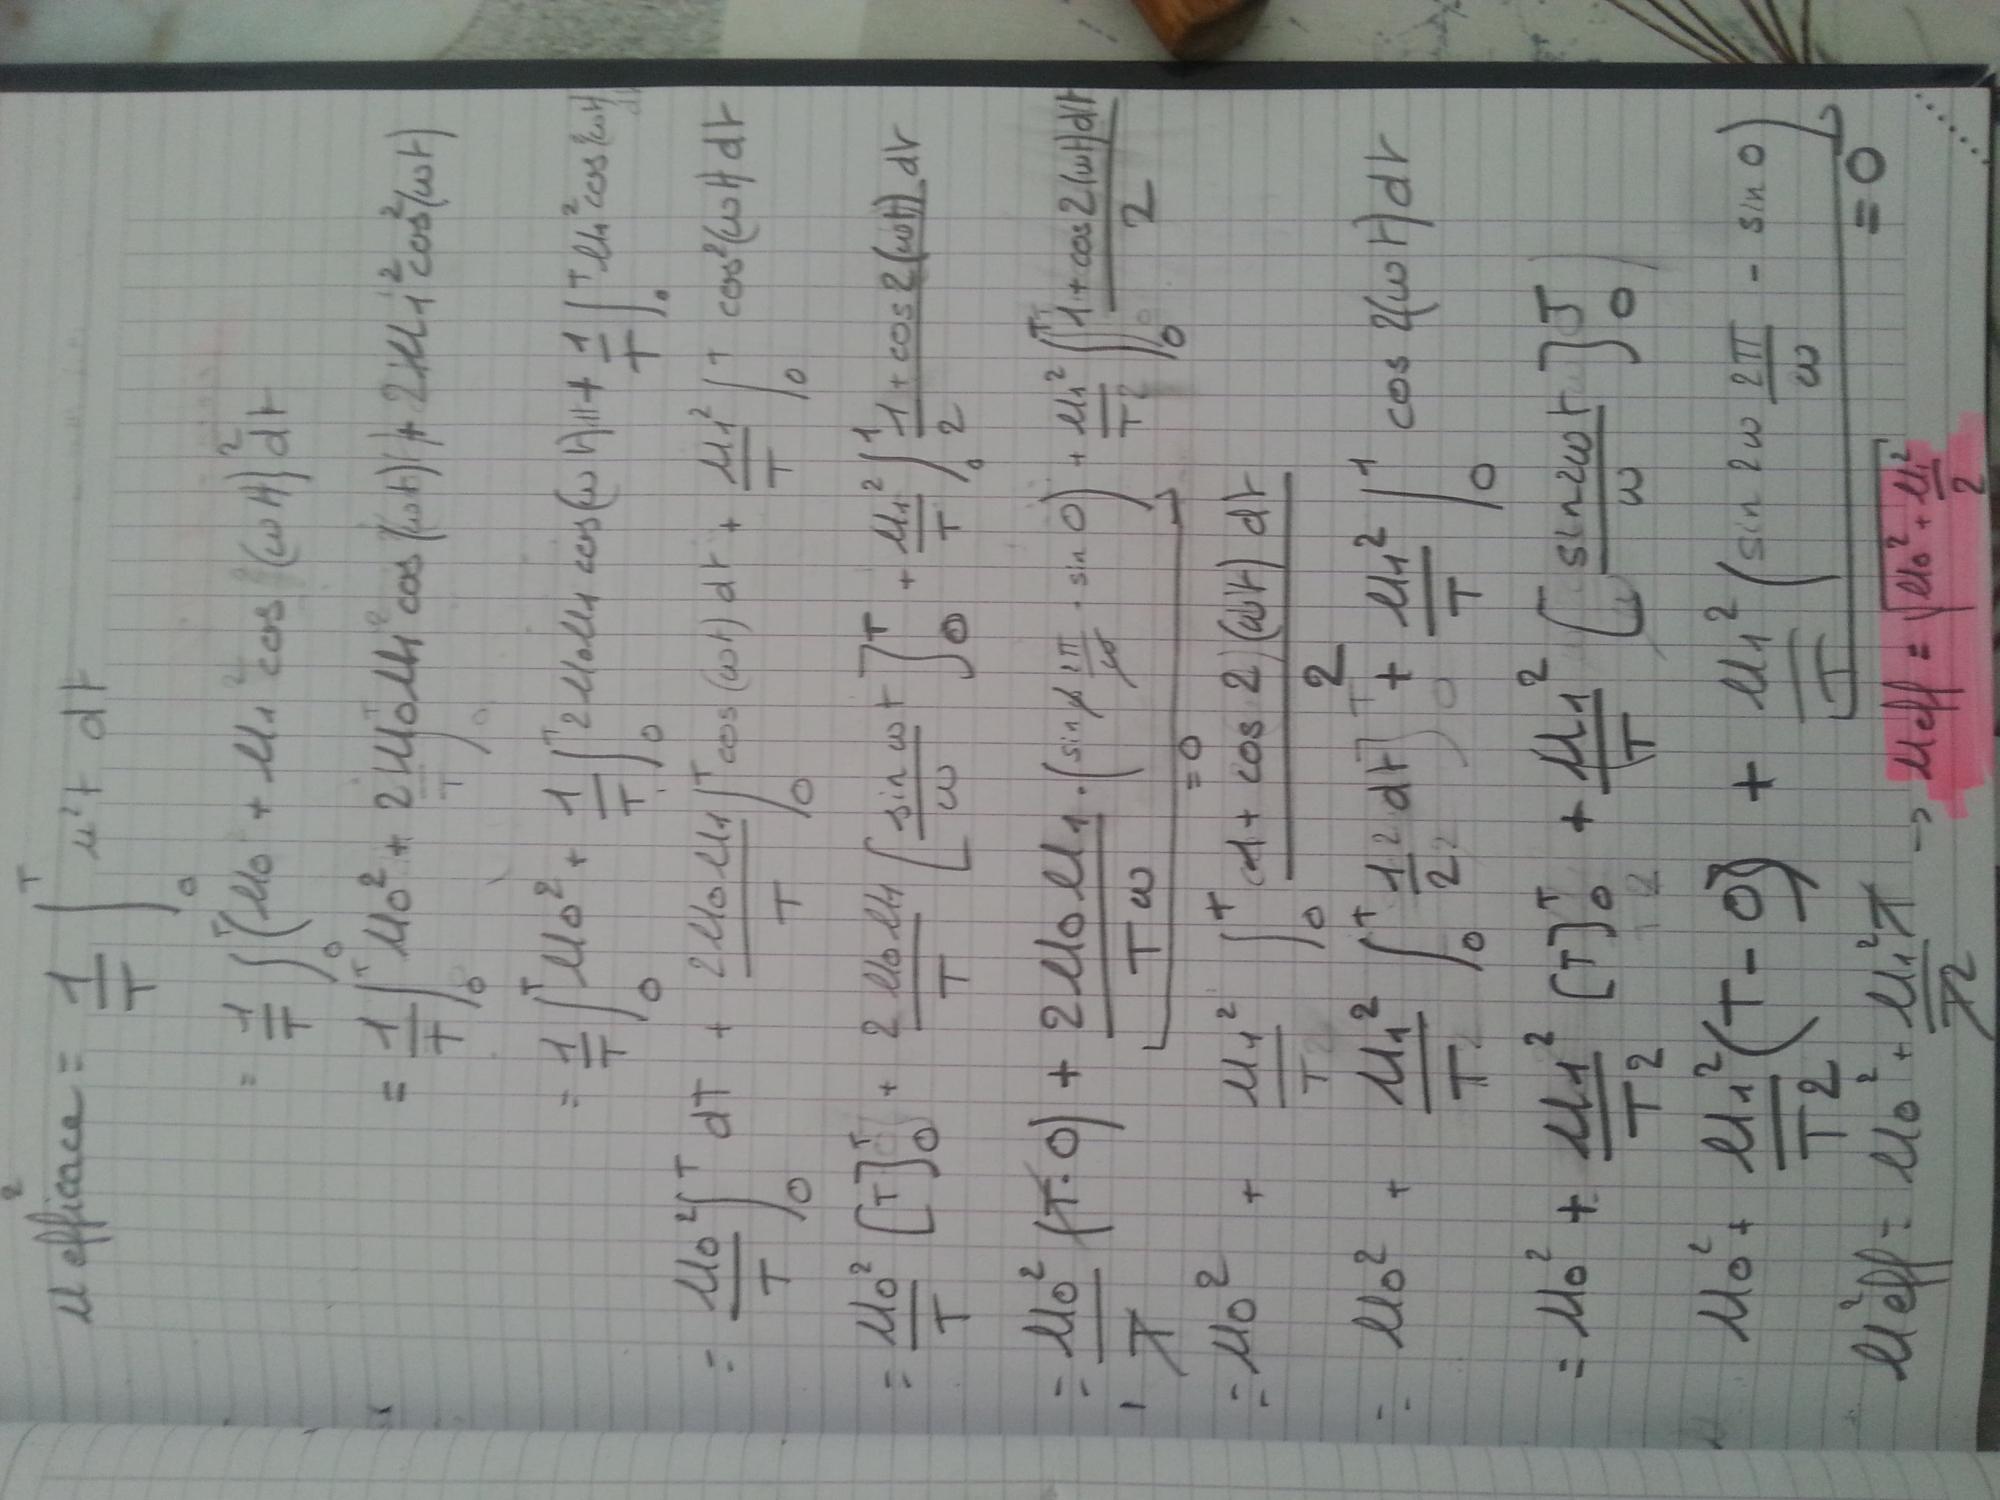 u² efficace = 1/T ∫₀ᵀ u²t dt
= 1/T ∫₀ᵀ (u₀ + u₁² cos (ωt))² dt
= 1/T ∫₀ᵀ u₀² + 2u₀u₁² cos (ωt) + 2u₁² cos² (ωt)
= 1/T ∫₀ᵀ u₀² + 1/T ∫₀ᵀ 2u₀u₁ cos (ωt) + 1/T ∫₀ᵀ u₁² cos² (ωt) dt
= u₀²/T ∫₀ᵀ dT + 2u₀u₁/T ∫₀ᵀ cos (ωt) dt + u₁²/T ∫₀ᵀ cos² (ωt) dt
= u₀²/T [T]₀ᵀ + 2u₀u₁/T [sin ωt/ω]₀ᵀ + u₁²/T ∫₀¹ 1 + cos 2(ωt)/2 dt
= u₀²/T (T - 0) + 2u₀u₁/Tω . (sin ω 2π/ω - sin 0) + u₁²/T2 ∫₀ᵀ 1 + cos 2(ωt) dt/2
= 0
= u₀² + u₁²/T ∫₀ᵀ 1 + cos 2 (ωt) dt/2
= u₀² + u₁²/T ∫₀ᵀ 1/2 dt + u₁²/T ∫₀¹ cos 2(ωt) dt
= u₀² + u₁²/T2 [T]₀ᵀ + u₁²/T [sin 2ωt/ω]₀ᵀ
u₀² + u₁²/T2 (T - 0) + u₁²/T (sin 2ω 2π/ω - sin 0)
= 0
u²eff = u₀² + u₁²T/T2 → ueff = √u₀² + u₁²/2